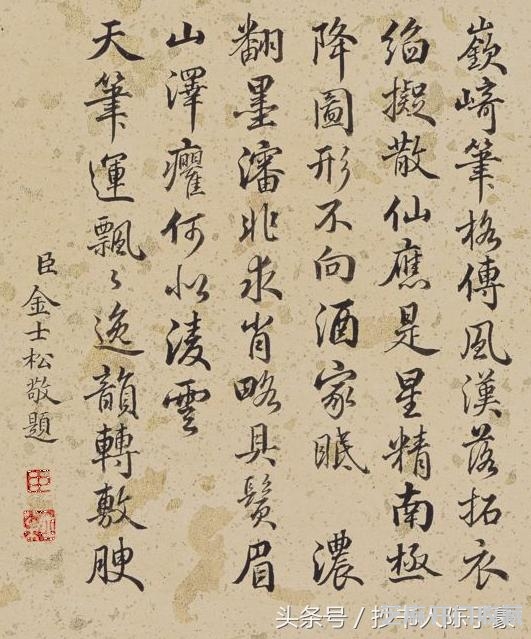 嶔崎筆格傳風漢落拓衣
擬散仙應是星精南極
降圖形不向酒家眠 濃
翻墨瀋非求肖略具鬢眉
山澤癯何似淩雲
天筆運飄々逸韻轉敷腴
臣金士松敬題
臣
头条号 / 抄书人陈